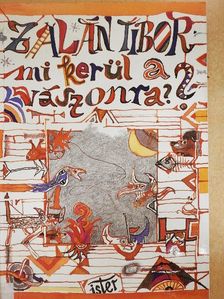 ZALÁN TIBOR:
mi kerül a
vászonra?
ister